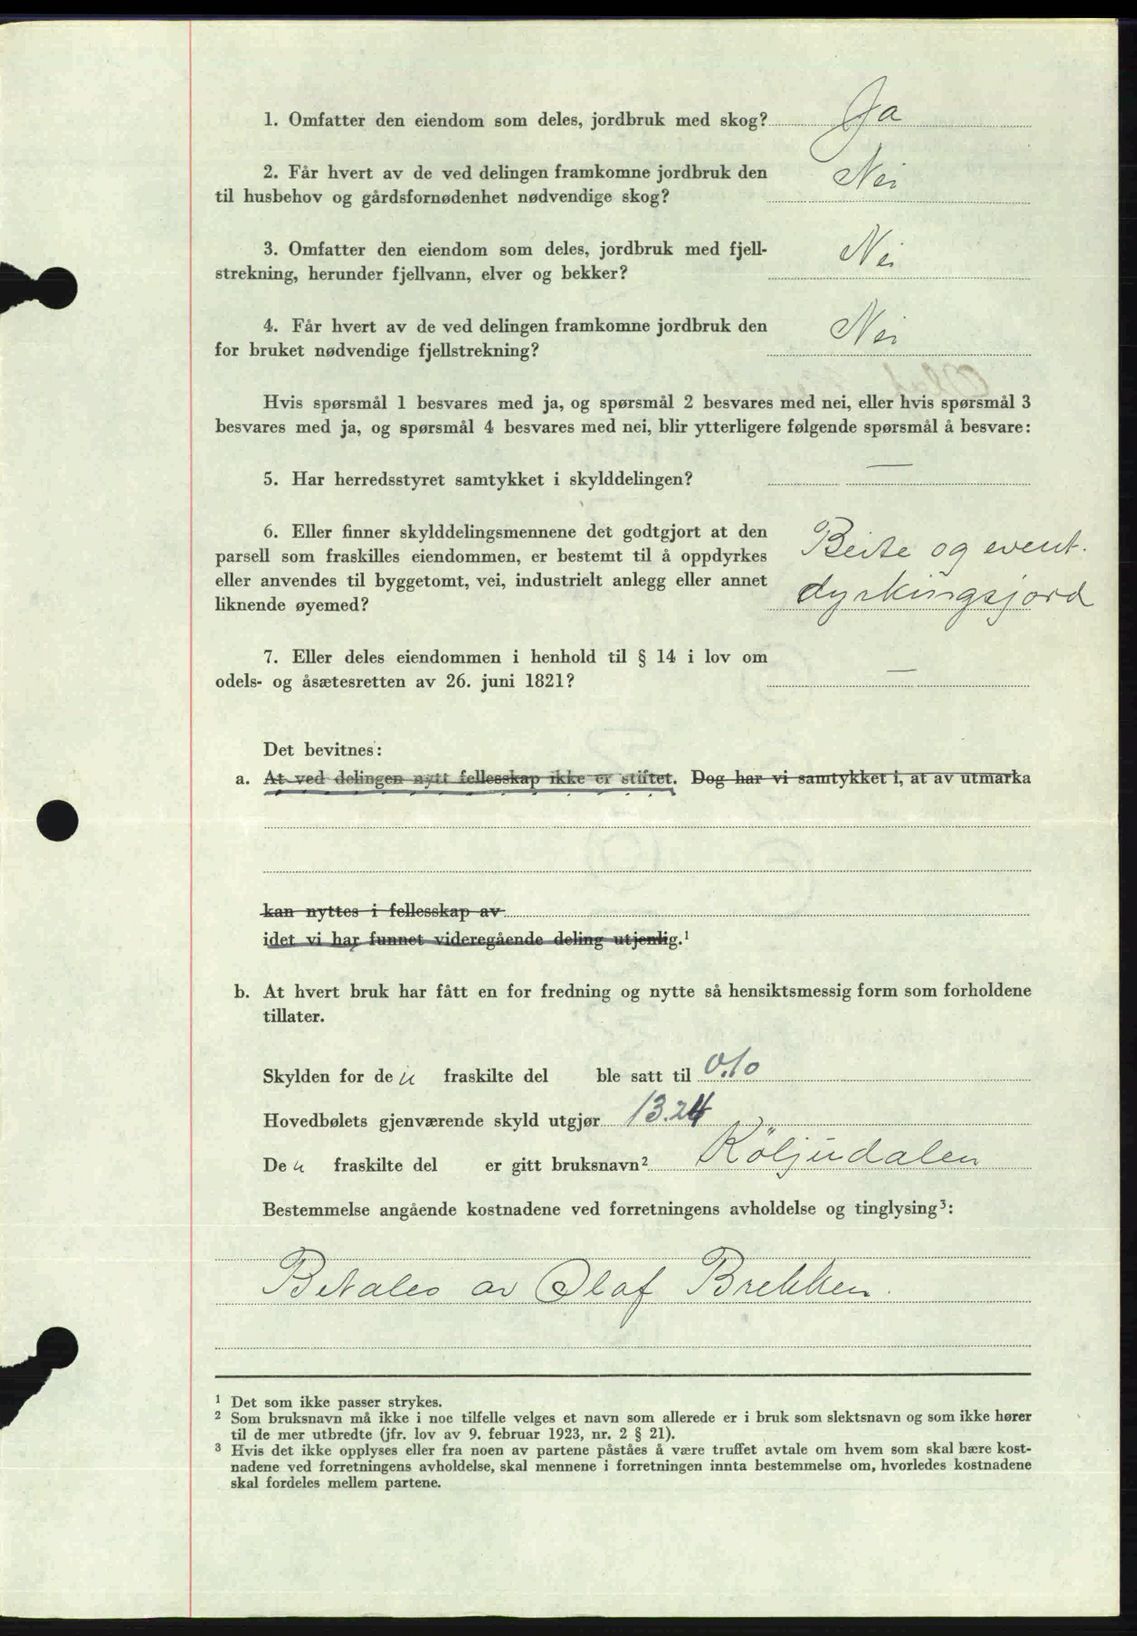 1. Omfatter den eiendom som deles, jordbruk med skog? Ja
2. Får hvert av de ved delingen framkomne jordbruk den
til husbehov og gårdsfornødenhet nødvendige skog? Nei
3. Omfatter den eiendom som deles, jordbruk med fjell-
strekning, herunder fjellvann, elver og bekker? Nei
4. Får hvert av de ved delingen framkomne jordbruk den
for bruket nødvendige fjellstrekning? Nei
Hvis spørsmål 1 besvares med ja, og spørsmål 2 besvares med nei, eller hvis spørsmål 3
besvares med ja, og spørsmål 4 besvares med nei, blir ytterligere følgende spørsmål å besvare:
5. Har herredsstyret samtykket i skylddelingen? —
6. Eller finner skylddelingsmennene det godtgjort at den
parsell som fraskilles eiendommen, er bestemt til å oppdyrkes Beite og event.
eller anvendes til byggetomt, vei, industrielt anlegg eller annet
liknende øyemed? dyrkingsjord
7. Eller deles eiendommen i henhold til § 14 i lov om
odels- og åsætesretten av 26. juni 1821? —
Det bevitnes:
a. At ved delingen nytt fellesskap ikke er stiftet. Dog har vi samtykket i, at av utmarka
kan nyttes i fellesskap av
idet vi har funnet videregående deling utjenlig.¹
b. At hvert bruk har fått en for fredning og nytte så hensiktsmessig form som forholdene
tillater.
Skylden for den fraskilte del ble satt til 0.10
Hovedbølets gjenværende skyld utgjør 13.24
Den fraskilte del er gitt bruksnavn² Köljudalen
Bestemmelse angående kostnadene ved forretningens avholdelse og tinglysing³:
Betales av Olaf Brekken.
¹ Det som ikke passer strykes.
² Som bruksnavn må ikke i noe tilfelle velges et navn som allerede er i bruk som slektsnavn og som ikke hører
til de mer utbredte (jfr. lov av 9. februar 1923, nr. 2 § 21).
³ Hvis det ikke opplyses eller fra noen av partene påståes å være truffet avtale om hvem som skal bære kost-
nadene ved forretningens avholdelse, skal mennene i forretningen innta bestemmelse om, hvorledes kostnadene
skal fordeles mellem partene.